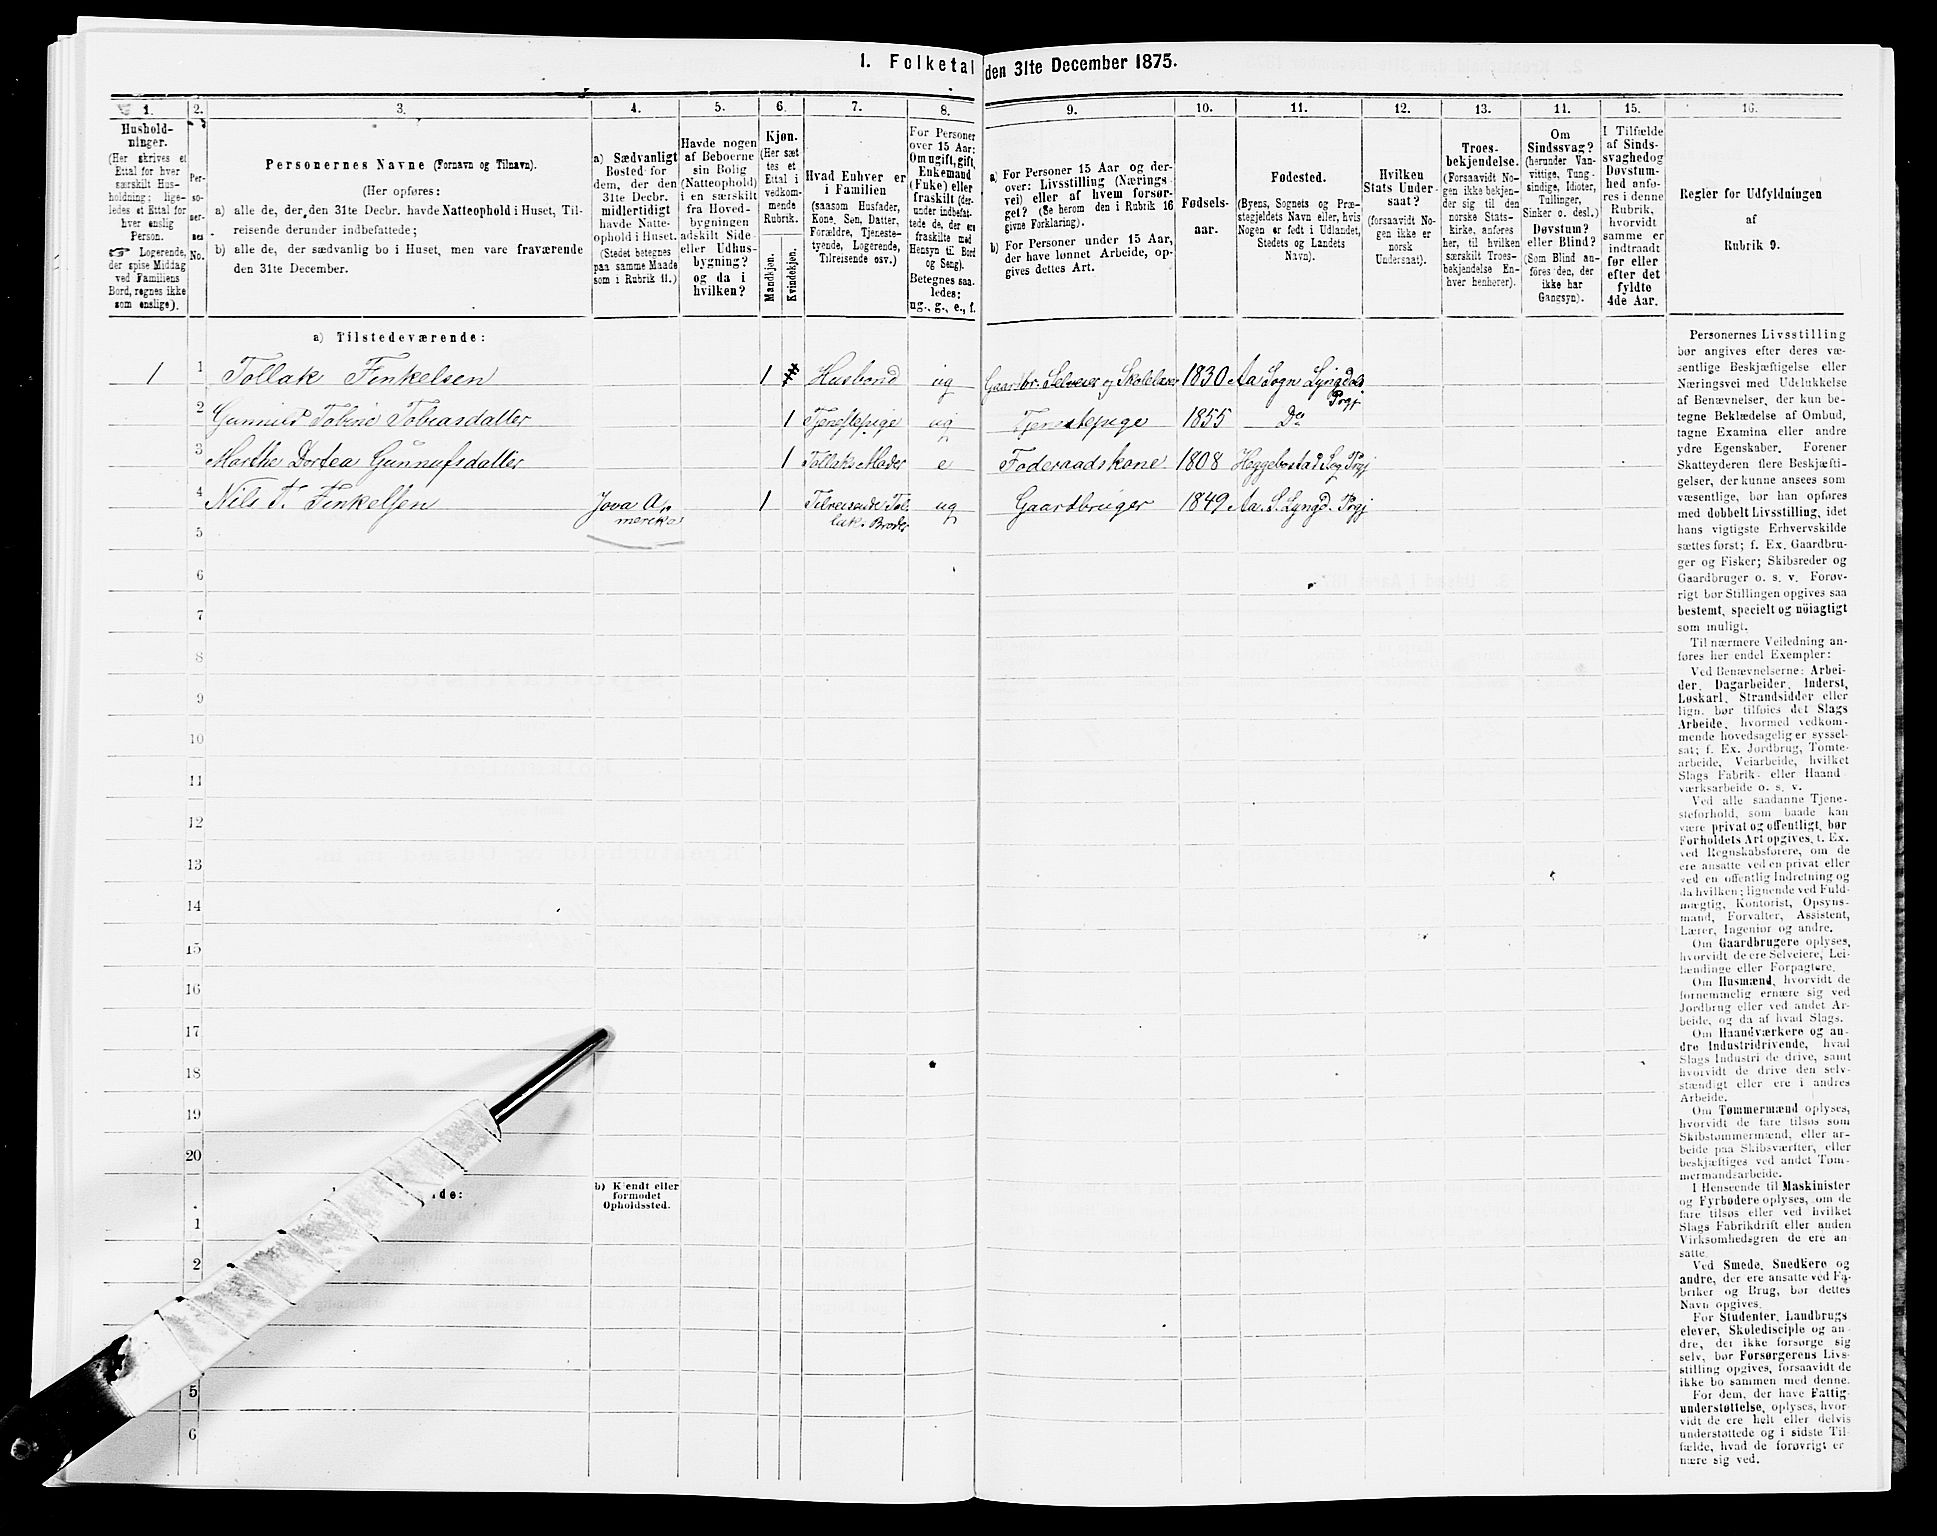 1. Folketal den 31te December 1875.
1. 2. 3. 4. 5. 6. 7. 8. 9. 10. 11. 12. 13. 11. 15. 16.
Hushold-
ninger.
(Her skrives et
Ettal for hver
særskilt Hus-
holdning; lige-
ledes et Ettal for
hver enslig
Person.
☞ Logerende,
der spise Middag
ved Familiens
Bord, regnes ikke
som enslige).
Per-
so-
ner-
nes
No.
Personernes Navne (Fornavn og Tilnavn).
(Her opføres:
a) alle de, der den 31te Decbr. havde Natteophold i Huset, Til-
reisende derunder indbefattede;
b) alle de, der sædvanlig bo i Huset, men vare fraværende
den 31te December.
a) Sædvanligt
Bosted for
dem, der den
31te Decbr.
midlertidigt
havde Natte-
ophold i Huset.
(Stedet betegnes
paa samme Maade
som i Rubrik 11.)
Havde nogen
af Beboerne
sin Bolig
(Natteophold)
i en særskilt
fra Hoved-
bygningen
adskilt Side-
eller Udhus-
bygning?
og da i
hvilken?
Kjøn.
(Her sæt
tes et
Ettal i
vedkom-
mende
Rubrik.
Mandkjøn.
Kvindekjøn.
Hvad Enhver er
i Familien
(saasom Husfader,
Kone, Søn, Datter,
Forældre, Tjeneste-
tyende, Logerende,
Tilreisende osv.)
For Personer
over 15 Aar:
Om ugift, gift,
Enkemand
(Fuke) eller
fraskilt (der-
under indbefat-
tede de, der ere
fraskilte med
Hensyn til Bord
og Seng).
Betegnes saa-
ledes:
ug., g., e., f.
a) For Personer 15 Aar og der-
over: Livsstilling (Nærings-
vei) eller af hvem forsør-
get? (Se herom den i Rubrik 16
givne Forklaring).
b) For Personer under 15 Aar,
der have lønnet Arbeide, op-
gives dettes Art.
Fødsels-
aar.
Fødested.
(Byens, Sognets og Præ-
stegjeldets Navn eller, hvis
Nogen er født i Udlandet,
Stedets og Landets
Navn).
Hvilken
Stats Under-
saat?
(forsaavidt No-
gen ikke er
norsk
Undersaat).
Troes-
bekjendelse.
(Forsaavidt No-
gen ikke bekjen-
der sig til den
norske Stats-
kirke, anføres
her, til hvilken
særskilt Troes-
bekjendelse En-
hver henhører).
Om
Sindssvag?
(herunder Van-
vittige, Tung-
sindige, Idioter,
Tullinger,
Sinker o. desl.)
Døvstum?
eller Blind?
(Som Blind an-
føres den, der
ikke har
Gangsyn).
I Tilfælde
af Sinds-
svaghed og
Døvstum-
hed anfø-
res i denne
Rubrik,
hvorvidt
samme er
indtraadt
før eller
efter det
fyldte
4de Aar.
Regler for Udfyldningen
af
Rubrik 9.
a) Tilstedeværende:
1 1 Tollak Finkelsen 1 Husbond ug Gaardbr. Selveier og Skolelærer 1830 Aa Sogn Lyngdals Prgj
2 Gunnild Tobine Tobiasdatter 1 Tjenestepige ug Tjenestepige 1855 Do
3 Marthe Dortea Gunnufsdatter 1 Tollaks Moder e Føderaadskone 1808 Heggebostad Sog. Prgj
4 Nils T. Finkelsen Jova Amerika 1 Tilreisende Tollak. Broder ug Gaardbruger 1849 Aa. S. Lyngd. Prgj
5
6
7
8
9
10
11
12
13
14
15
16
17
18
19
20
de:
b) Kjendt eller
formodet
Opholdssted.
1
2
5
6
Personernes Livsstilling
bør angives efter deres væ-
sentlige Beskjæftigelse eller
Næringsvei med Udelukkelse
af Benævnelser, der kun be-
tegne Beklædelse af Ombud,
tagne Examina eller andre
ydre Egenskaber. Forener
Skatteyderen flere Beskjæfti-
gelser, der kunne ansees som
væsentlige, bør han opføres
med dobbelt Livsstilling, idet
hans vigtigste Erhvervskilde
sættes først; f. Ex. Gaardbru-
ger og Fisker; Skibsreder og
Gaardbruger o. s. v. Forøv-
rigt bør Stillingen opgives saa
bestemt, specielt og nöiagtigt
som muligt.
Til nærmere Veiledning an-
føres her endel Exempler:
Ved Benævnelserne: Arbei-
der, Dagarbeider, Inderst,
Løskarl, Strandsidder eller
lign. bør tilføies det Slags
Arbeide, hvormed vedkom-
mende hovedsagelig er syssel-
sat; f. Ex. Jordbrug, Tomte-
arbeide, Veiarbeide, hvilket
Slags Fabrik- eller Haand-
værksarbeide o. s. v.
Ved alle saadanne Tjene-
steforhold, som baade kan
være privat og offentligt, bør
Forholdets Art opgives, f. Ex.
ved Regnskabsførere, om de
ere ansatte ved en privat eller
ved en offentlig Indretning og
da hvilken; lignende ved Fuld-
mægtig, Kontorist, Opsyns-
mand, Forvalter, Assistent,
Lærer, Ingeniør og andre.
Om Gaardbrugere oplyses,
hvorvidt de ere Selveiere, Lei-
lændinge eller Forpagtere.
Om Husmænd, hvorvidt de
fornemmelig ernære sig ved
Jordbrug eller ved andet Ar-
beide, og da af hvad Slags.
Om Haandværkere og an-
dre Industridrivende, hvad
Slags Industri de drive, samt
hvorvidt de drive den selv-
stændigt eller ere i andres
Arbeide.
Om Tømmermænd oplyses,
hvorvidt de fare tilsøs som
Skibstømmermænd, eller ar-
beide paa Skibsværfter, eller
beskjæftiges ved andet Tøm-
mermandsarbeide.
I Henseende til Maskinister
og Fyrbødere oplyses, om de
fare tilsøs eller ved hvilket
Slags Fabrikdrift eller anden
Virksomhedsgren de ere an-
satte.
Ved Smede, Snedkere og
andre, der ere ansatte ved Fa-
briker og Brug, bør dettes
Navn opgives.
For Studenter, Landbrugs
elever, Skoledisciple og an-
dre, der ikke forsørge sig
selv, bør Forsørgerens Livs-
stilling opgives, forsaavidt de
ikke bo sammen med denne.
For dem, der have Fattig-
understøttelse, oplyses, hvor-
vidt de ere helt eller delvis
understøttede og i sidste Til-
fælde, hvad de forøvrigt er
nære sig ved.